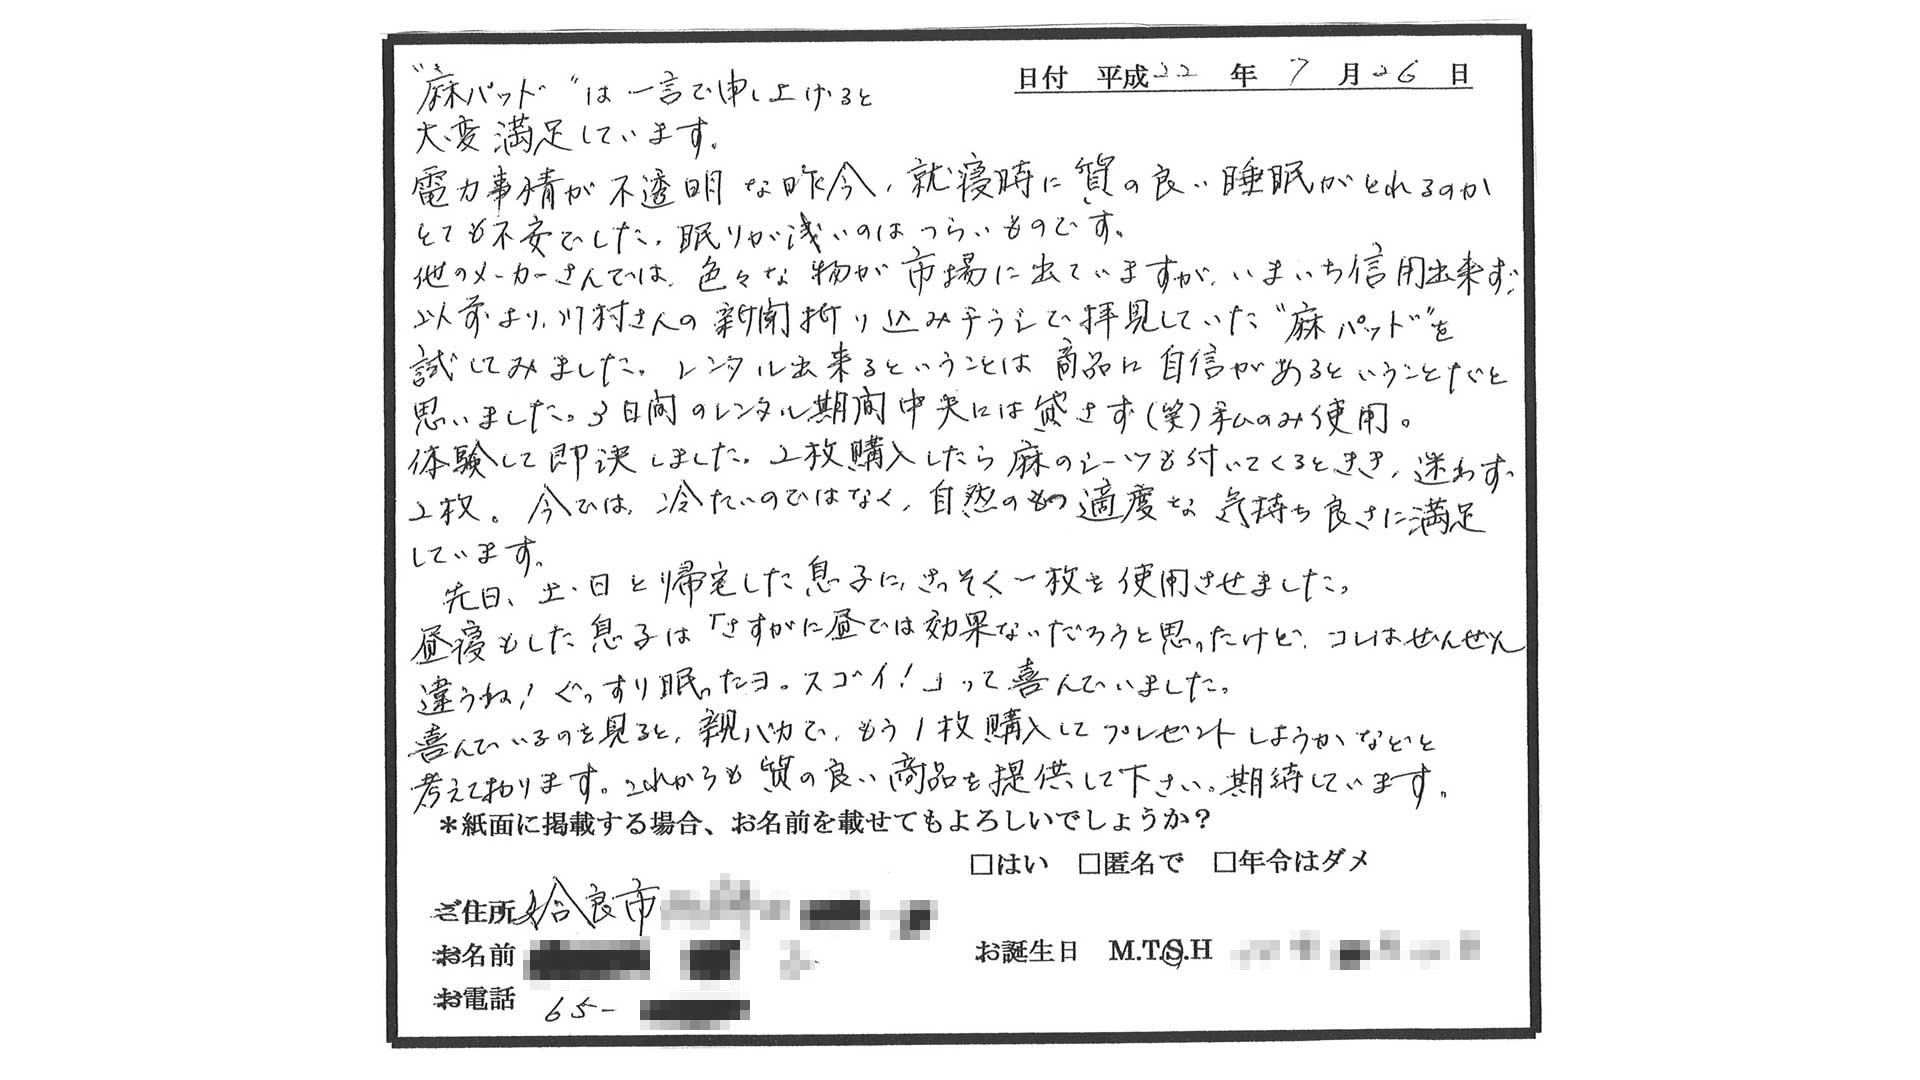 日付 平成22年 7月26日
"麻パッド"は一言で申し上げると
大変満足しています。
電力事情が不透明な昨今、就寝時に質の良い睡眠がとれるのか
とても不安でした。眠りが浅いのはつらいものです。
他のメーカーさんでは、色々な物が市場に出ていますが、いまいち信用出来ず、
以前より、川村さんの新聞折り込みチラシで拝見していた"麻パッド"を
試してみました。レンタル出来るということは商品に自信があるということだと
思いました。3日間のレンタル期間中夫には貸さず(笑)私のみ使用。
体験して即決しました。2枚購入したら麻のシーツも付いてくるときき、迷わず
2枚。今では、冷たいのではなく、自然のもつ適度な気持ち良さに満足
しています。
先日、土・日と帰宅した息子に、さっそく一枚を使用させました。
昼寝もした息子は「さすがに昼では効果ないだろうと思ったけど、コレはぜんぜん
違うね!ぐっすり眠ったヨ。スゴイ!」って喜んでいました。
喜んでいるのを見ると、親バカで、もう1枚購入してプレゼントしようかなどと
考えております。これからも質の良い商品を提供して下さい。期待しています。
*紙面に掲載する場合、お名前を載せてもよろしいでしょうか?
□はい □匿名で □年令はダメ
ご住所 姶良市
お名前
お誕生日 M.T.S.H
お電話 65-